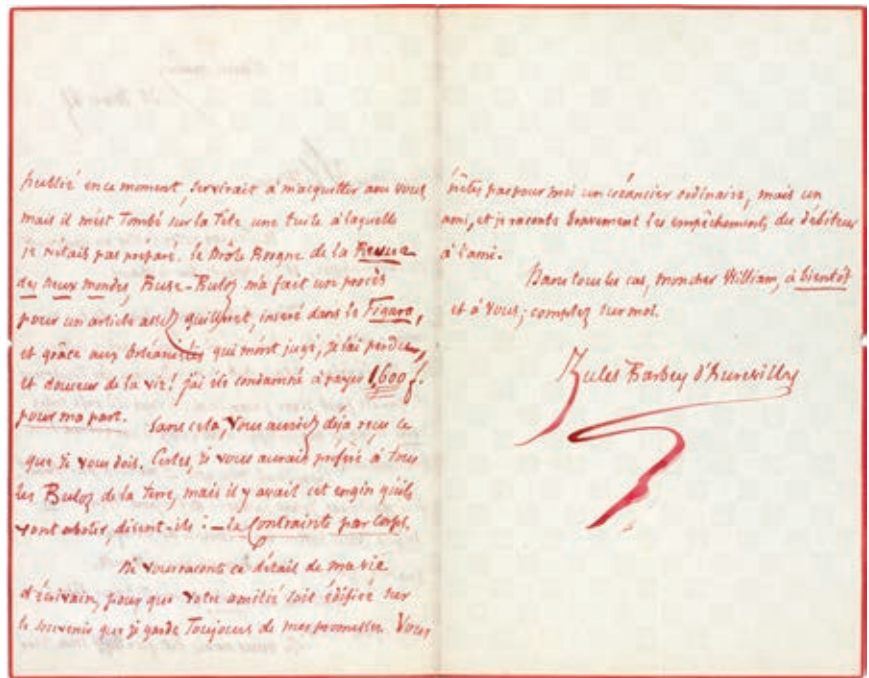 publié en ce moment, servirait à m'acquitter avec vous
mais il m'est Tombé sur la Tête une tuile à laquelle
je n'étais pas préparé. le Drôle Borgne de la Revue
des Deux mondes, Buse-Buloz m'a fait un procès
pour un article assez guilleret, inséré dans le Figaro,
et grâce aux Orléanistes qui m'ont jugé, je l'ai perdu,
et douceur de la vie! j'ai été condamné à payer 1,600 f.
pour ma part. Sans cela, vous auriez déjà reçu ce
que je vous dois. Certes, je vous aurais préféré à Tous
les Buloz de la Terre, mais il y avait cet engin qu'ils
vont abolir, disent-ils : — la Contrainte par Corps.
Je vous raconte ce détail de ma vie
d'écrivain, pour que votre amitié soit édifiée sur
le souvenir que je garde Toujours de mes promesses. Vous
n'êtes pas pour moi un créancier ordinaire, mais un
ami, et je raconte bravement les empêchements du débiteur
à l'ami.
Dans tous les cas, mon cher William, à bientôt
et à vous; comptez sur moi.
Jules Barbey d'Aurevilly